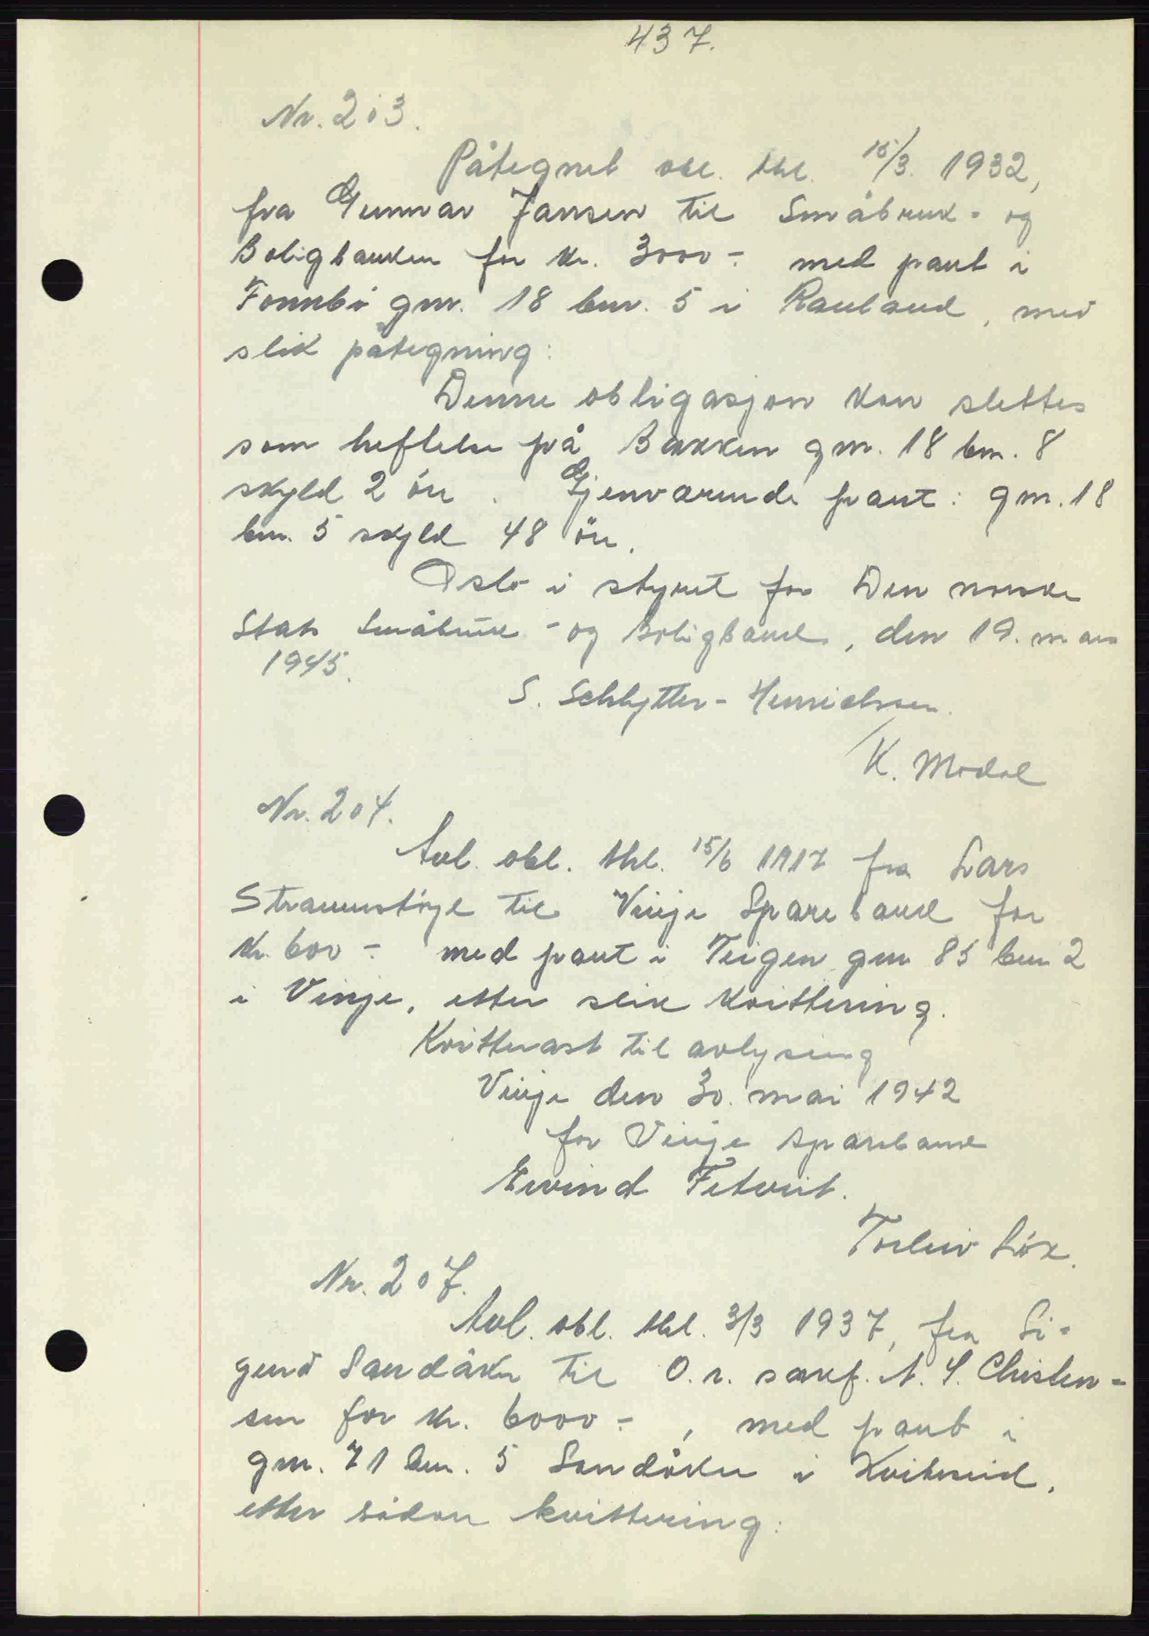 437.
Nr. 203.
Påtegnet obl. thl. 15/3. 1932,
fra Gunnar Jansen til Småbruk- og
Boligbanken for kr. 3000 - med pant i
Fonnbö gnr. 18 bnr. 5 i Rauland, med
slik påtegning:
Denne obligasjon kan slettes
som heftelse på Bakken gnr. 18 bnr. 8
skyld 2 öre. Gjenværende pant: gnr. 18
bnr. 5 skyld 48 öre.
Oslo i styret for Den norske
Stats Småbruk - og boligbank, den 19. mars
1945.
S. Schlytter - Henrichsen.
/K. Modal
Nr. 204.
Avl. obl. thl. 15/6 1917 fra Lars
Straumstöyl til Vinje Sparebank for
kr. 600 - med pant i Teigen gnr 85 bnr 2
i Vinje, etter slik kvittering.
Kvitterast til avlysing
Vinje den 30. mai 1942
for Vinje sparebank
Eivind Fetveit.
Torleiv Löx.
Nr. 207.
Avl. obl. thl. 3/3 1937, fra Si-
gurd Sandåker til O.r. sakf. N. S. Christen-
sen for kr. 6000 - , med pant i
gnr. 71 bnr. 5 Sandåker i Kviteseid,
etter sådan kvittering: